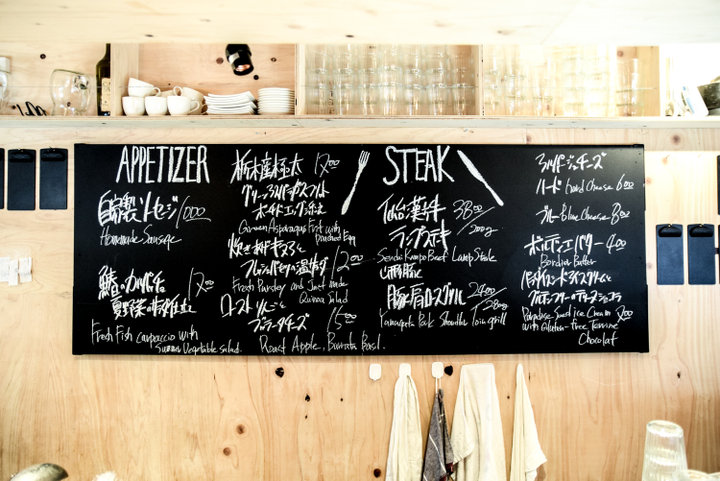 APPETIZER
自家製ソーセージ 1000
Homemade Sausage
鯖のカルパッチョ 1200
夏野菜の
Fresh Fish carpaccio with
Summer Vegetable salad.
栃木産極太 1200
グリーンアスパラガスフリット
ポーチドエッグ添え
Green Asparagus Frit with
Poached Egg
炊き
フレッシュパセリの温サラダ 1200
Fresh Parsley and Just made
Quinoa Salad
ローストりんごと
ブッラータチーズ 1500
Roast Apple, Burrata Basil.
STEAK
仙台漢方牛 3800
ランプステーキ /200g
Sendai Kampo Beef Lamp Steak
山形豚
豚肩ロースグリル 2400
/280g
Yamagata Pork Shoulder Loin grill
チーズ
ハード Hard Cheese 600
ブルー Blue Cheese 800
ボルディエバター 400
Bordier Butter
パラダイスシードアイスクリームと
グルテンフリーのテリーヌショコラ
Paradise Seed ice Cream 800
with Gluten-free Terrine
Chocolat